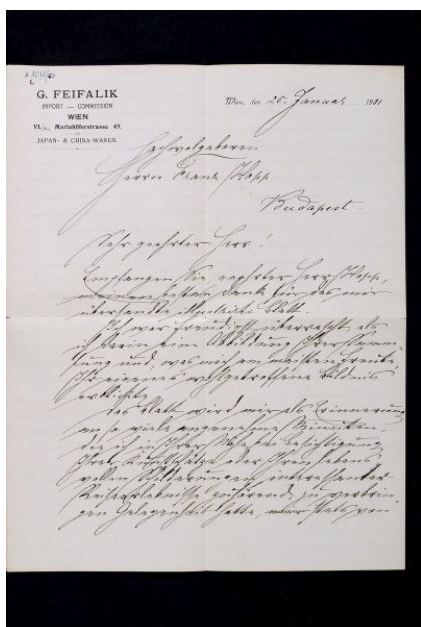 G. FEIFALIK
IMPORT — COMMISSION
WIEN
VI./2, Mariahilferstrasse 49.
JAPAN- & CHINA-WAREN.
Wien, den 25. Januar 1901
Hochwolgeboren
Herrn Franz Hopp
Budapest.
Sehr geehrter Herr!
Empfangen Sie, geehrter Herr Hopp,
meinen besten Dank für das mir
übersandte illustrierte Blatt.
Ich war freudigst überrascht, als
ich darin eine Abbildung Ihrer Samm-
lung und, was mich am meisten freute,
Ihr eigenes wohlgetroffene Bildnis
erblickte.
Das Blatt wird mir als Erinnerung
an so viele angenehme Minuten,
die ich in Ihrer Nähe bei Besichtigung
Ihrer Kunstschätze oder Ihren lebens-
vollen Schilderungen interessanter
Reiseerlebnisse zuhörend, zu verbrin-
gen Gelegenheit hatte, mir stets von